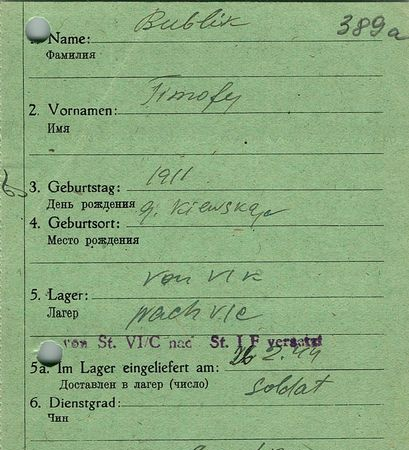 389a
1. Name: Bublik
Фамилия
2. Vornamen: Timofej
Имя
3. Geburtstag: 1911
День рождения
4. Geburtsort: g. Kiewskaja
Место рождения
von VI K
5. Lager: nach VIC
Лагерь
von St. VI/C nach St. I F versetzt
5a. Im Lager eingeliefert am: 26.2.44
Доставлен в лагерь (число)
6. Dienstgrad: Soldat
Чин